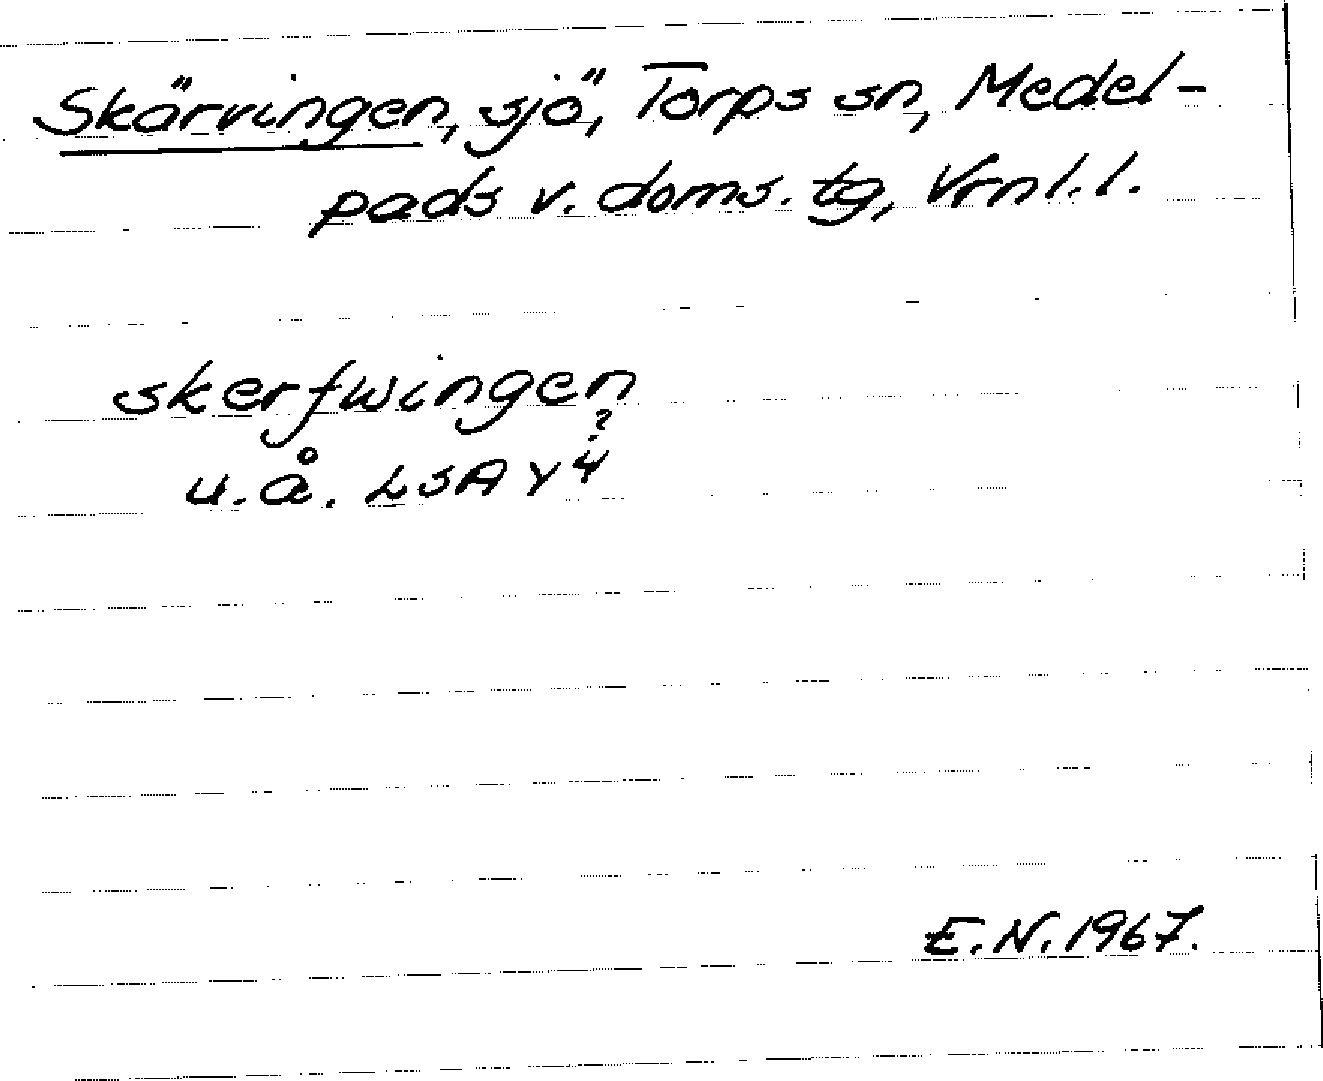 Skärvingen, sjö, Torps sn, Medel-
pads v. doms. tg, Vrnl. l.
skerfwingen
?
u.å. LSA Y 4
E.N. 1967.